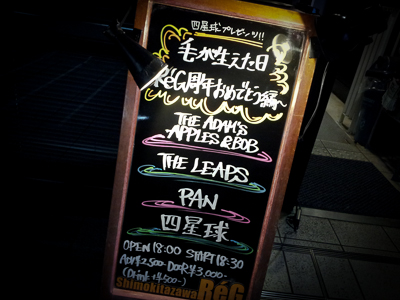 四星球プレゼンツ!!
毛が生えた日
RéG周年おめでとう編〜
THE ADAM'S
APPLES & BOB
THE LEAPS
PAN
四星球
OPEN 18:00 START 18:30
ADV¥2500- DOOR¥3,000-
(Drink ¥500-)
shimokitazawa RéG